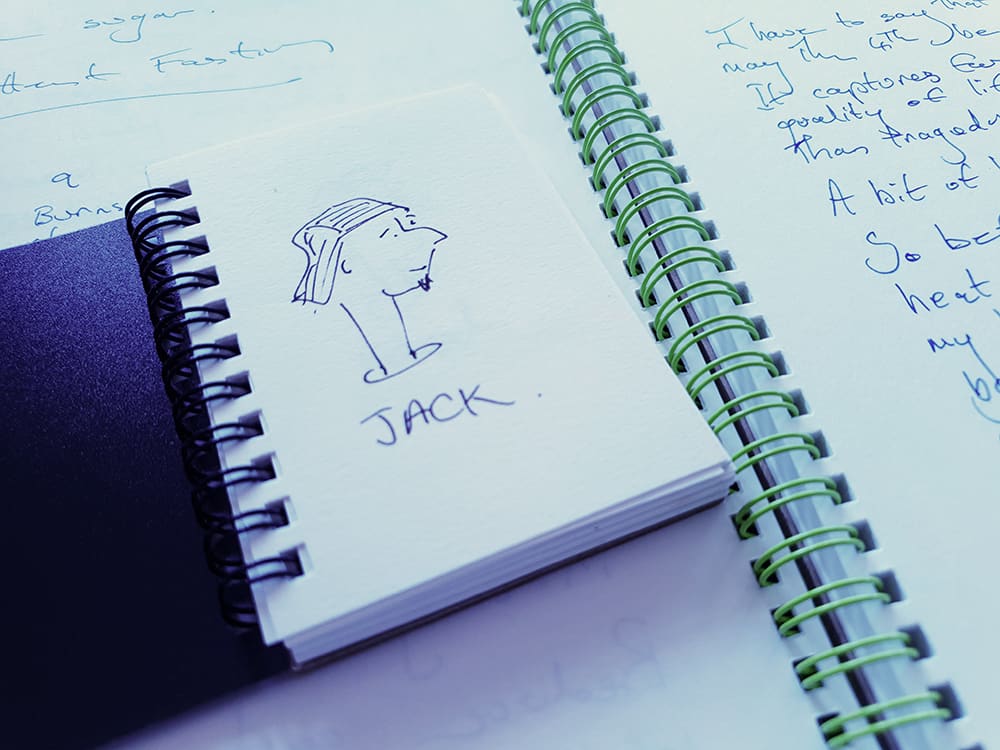 sugar.
Fasting
a
Burns
JACK.
I have to say that
may the 4th be
It captures
quality of
than tragedy
A bit of
So
heat
my